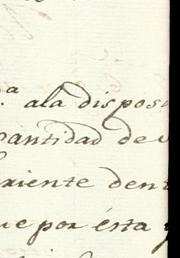 a ala dispos
cantidad de
riente den
ue por ésta